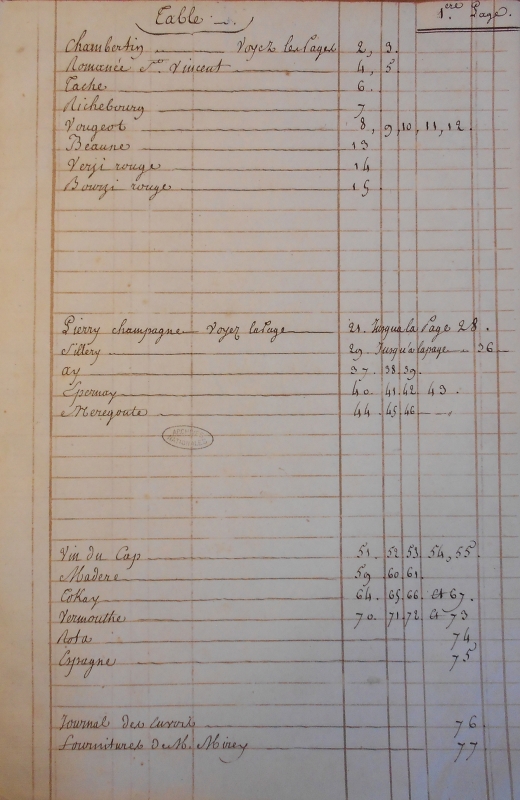 Table
1.ere Page.
Chambertin Voyez les Pages 2, 3.
Romanée St. Vincent 4, 5.
Tache 6.
Richebourg 7
Vougeot 8, 9, 10, 11, 12.
Beaune 13
Verzi rouge 14
Bouzi rouge 15
Pierry champagne Voyez la Page 21. Jusqua la Page 28.
Sillery 29. Jusqu'a la page 36
ay 37. 38. 39.
Epernay 40. 41. 42. 43.
Meregoute 44. 45. 46
ARCHIVES NATIONALES
Vin du Cap 51. 52. 53. 54, 55.
Madere 59 60. 61.
Tokay 64. 65. 66. et 67.
Vermouthe 70. 71. 72. et 73
Rota 74
Espagne 75
Journal des envois 76
Fournitures de M. Mirey 77